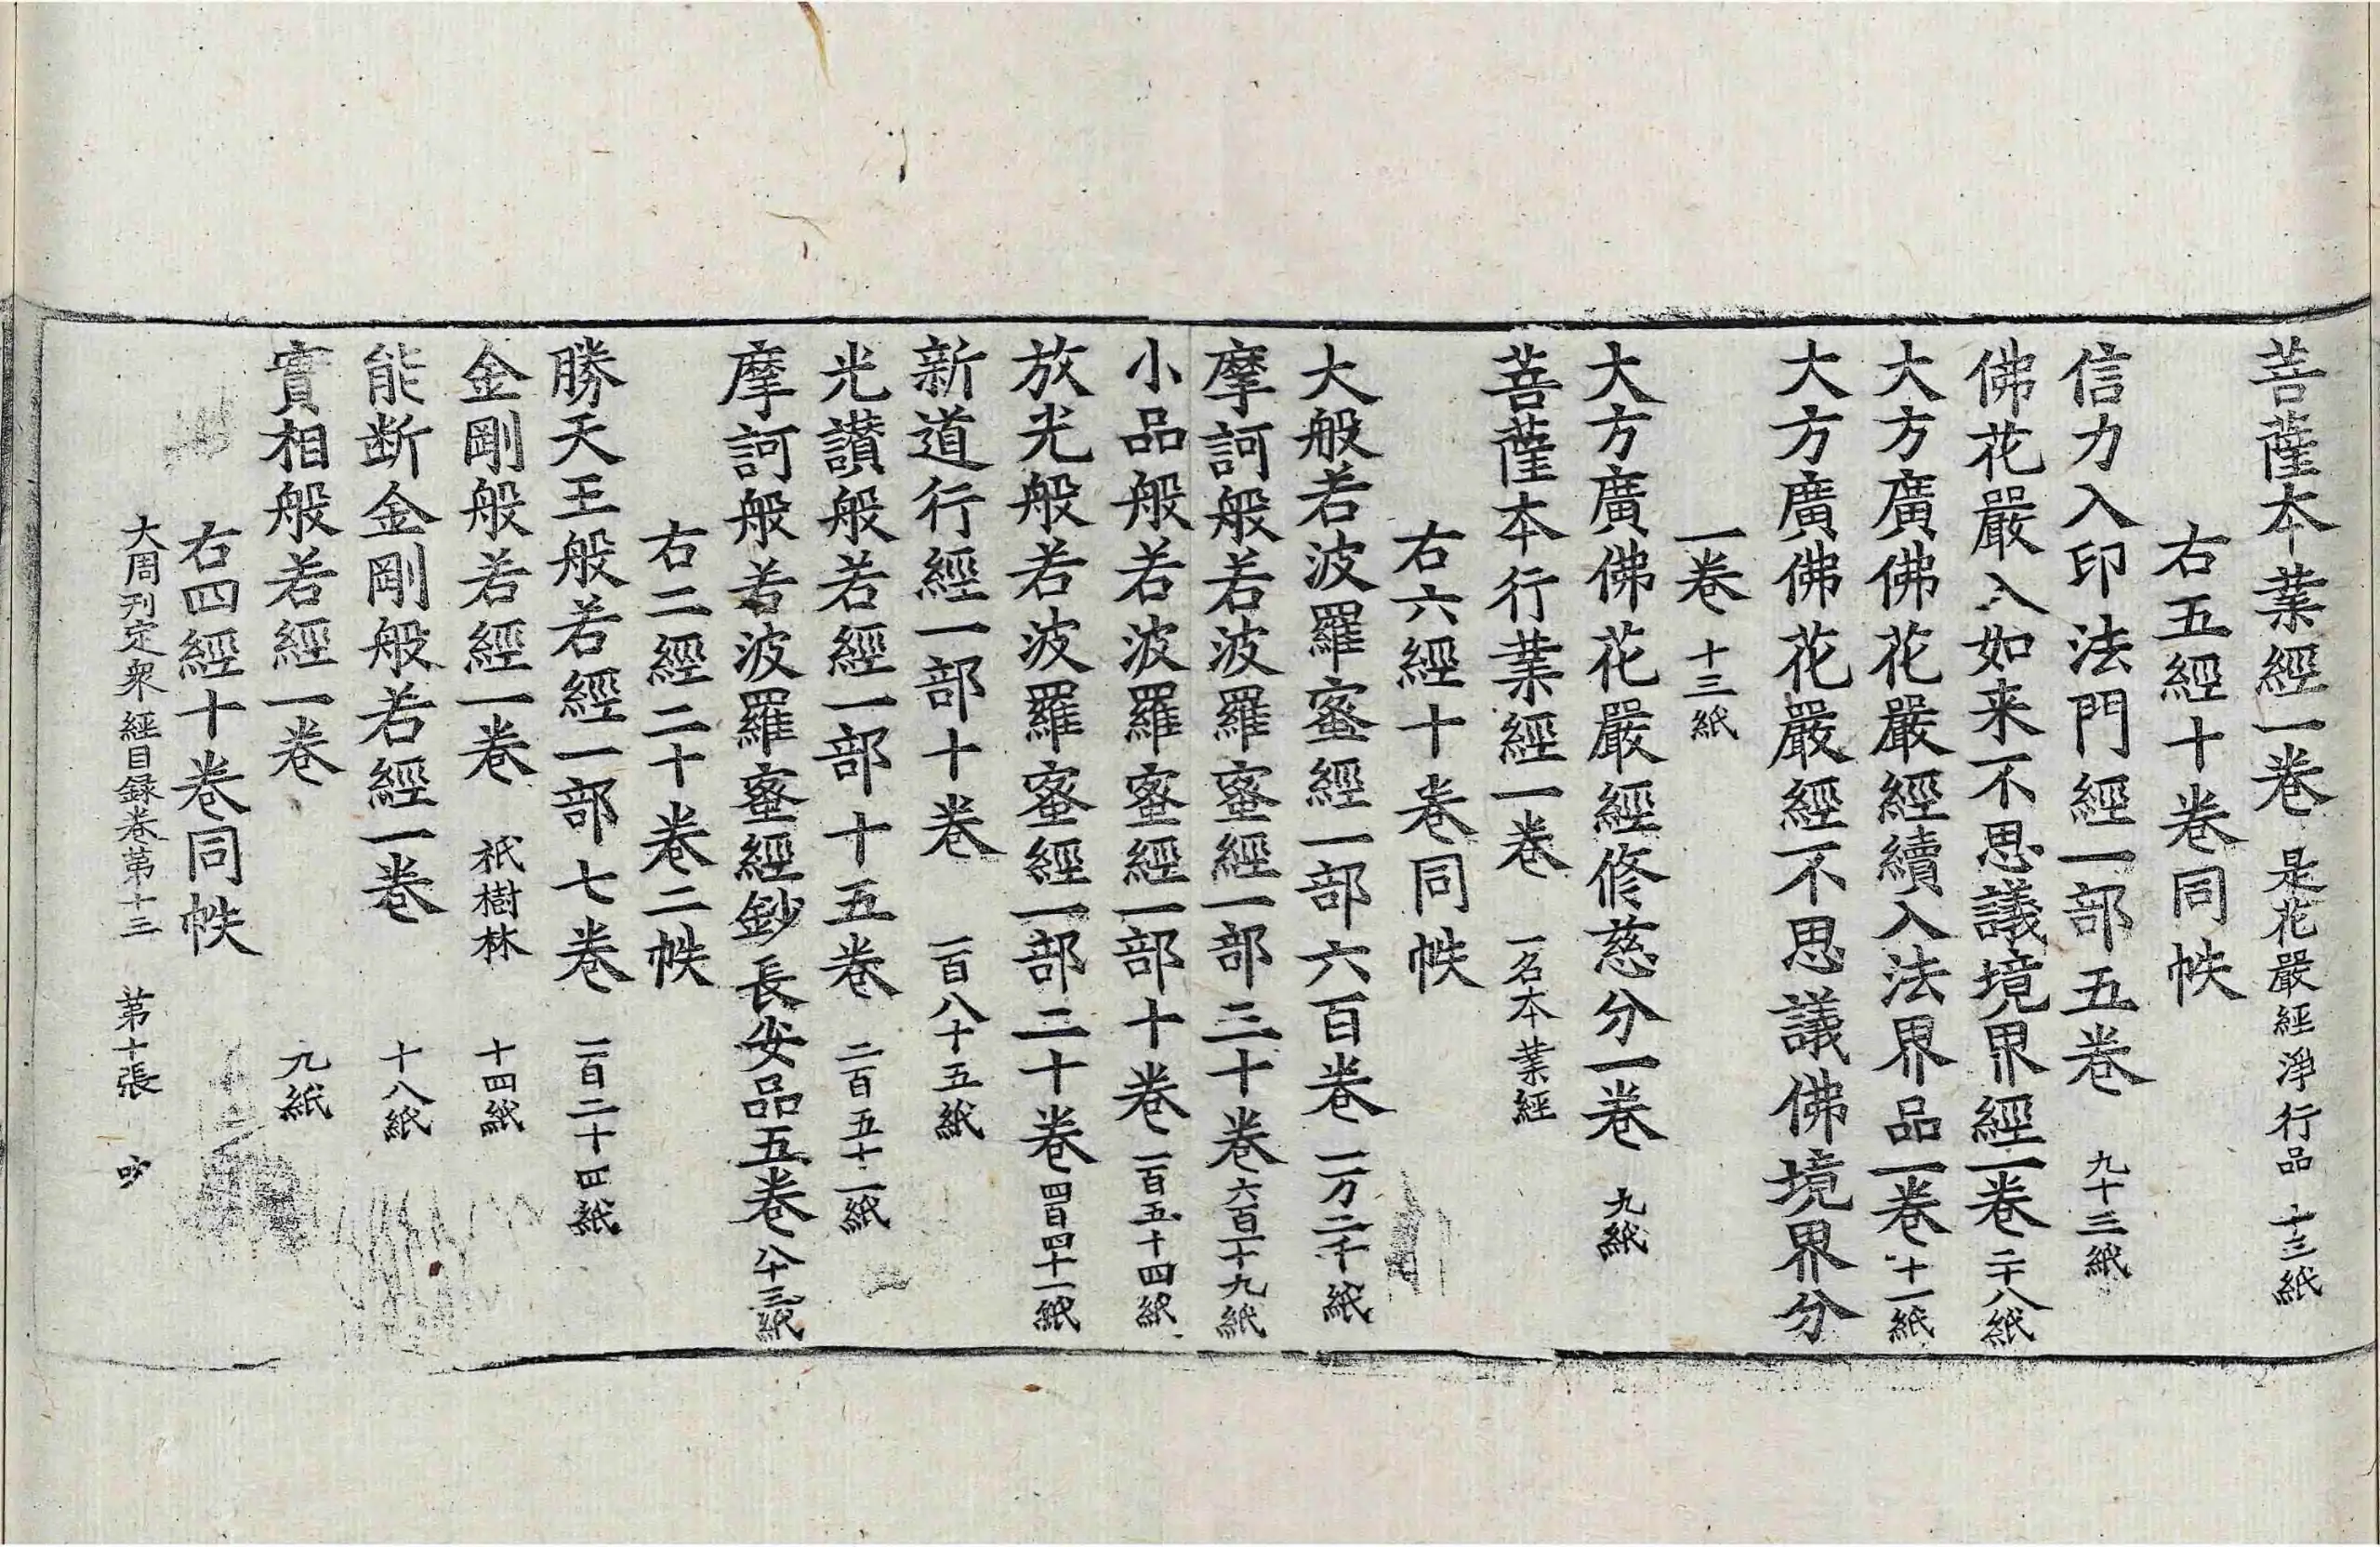 菩薩本業經一卷 是花嚴經淨行品 十三紙
右五經十卷同帙
信力入印法門經一部五卷 九十三紙
佛花嚴入如来不思議境界經一卷 二十八紙
大方廣佛花嚴經續入法界品一卷 十一紙
大方廣佛花嚴經不思議佛境界分
一卷 十三紙
大方廣佛花嚴經修慈分一卷 九紙
菩薩本行業經一卷 一名本業經
右六經十卷同帙
大般若波羅蜜經一部六百卷 一万二千紙
摩訶般若波羅蜜經一部三十卷 六百一十九紙
小品般若波羅蜜經一部十卷 一百五十四紙
放光般若波羅蜜經一部二十卷 四百四十一紙
新道行經一部十卷 一百八十五紙
光讃般若經一部十五卷 二百五十一紙
摩訶般若波羅蜜經鈔長安品五卷 八十三紙
右二經二十卷二帙
勝天王般若經一部七卷 一百二十四紙
金剛般若經一卷 祇樹林 十四紙
能断金剛般若經一卷 十八紙
實相般若經一卷 九紙
右四經十卷同帙
大周刋定衆經目録卷苐十三 苐十張 吵